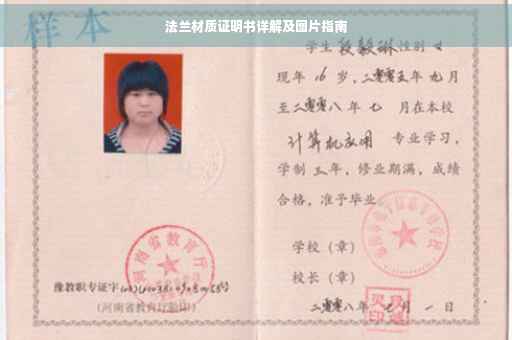 法兰材质证明书详解及图片指南
样本
学生段毅琳性别女
现年16岁，二零零五年九月
至二零零八年七月在本校
计算机应用 专业学习，
学制三年，修业期满，成绩
合格，准予毕业。
学校（章）
校长（章）
二零零八年七月一日
河南省教育厅
豫教职专证字
（河南省教育厅验印）